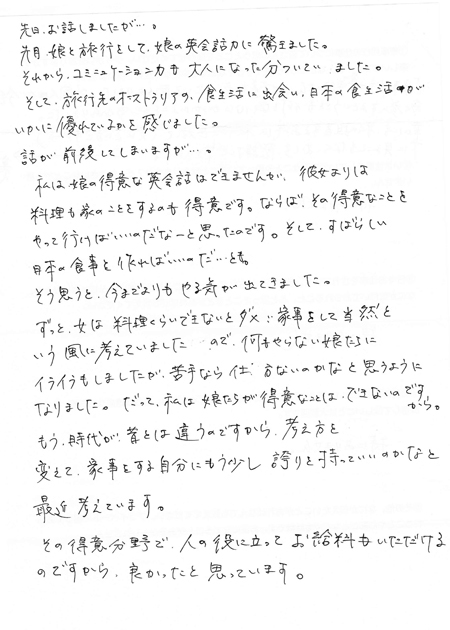 先日、お話しましたが…。
先月、娘と旅行をして、娘の英会話力に驚きました。
それから、コミニュケーション力も大人になった分ついていました。
そして、旅行先のオーストラリアの、食生活に出会い、日本の食生活が
いかに優れているかを感じました。
話が前後してしまいますが…。
私は娘の得意な英会話はできませんが、彼女よりは
料理も家のことをするのも得意です。ならば、その得意なことを
やって行けばいいのだなーと思ったのです。そして、すばらしい
日本の食事を作ればいいのだ…とも。
そう思うと、今までよりもやる気が出てきました。
ずっと、女は料理くらいできないとダメ…家事をして当然と
いう風に考えていましたので、何もやらない娘たちに
イライラもしましたが、苦手なら仕方ないのかなと思うように
なりました。だって、私は娘たちが得意なことは、できないのですから。
もう、時代が昔とは違うのですから、考え方を
変えて、家事をする自分にもう少し誇りを持っていいのかなと
最近考えています。
その得意分野で、人の役に立ってお給料もいただける
のですから、良かったと思っています。